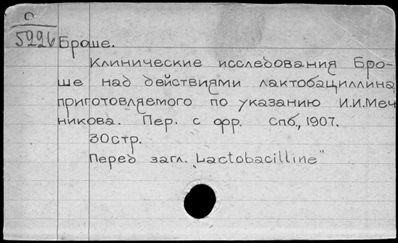 С
5996
Броше.
Клинические исследования Бро-
ше над действиями лактобациллина
приготовляемого по указанию И.И.Меч-
никова. Пер. с фр. Спб., 1907.
30стр.
Перед загл. "Lactobacilline"